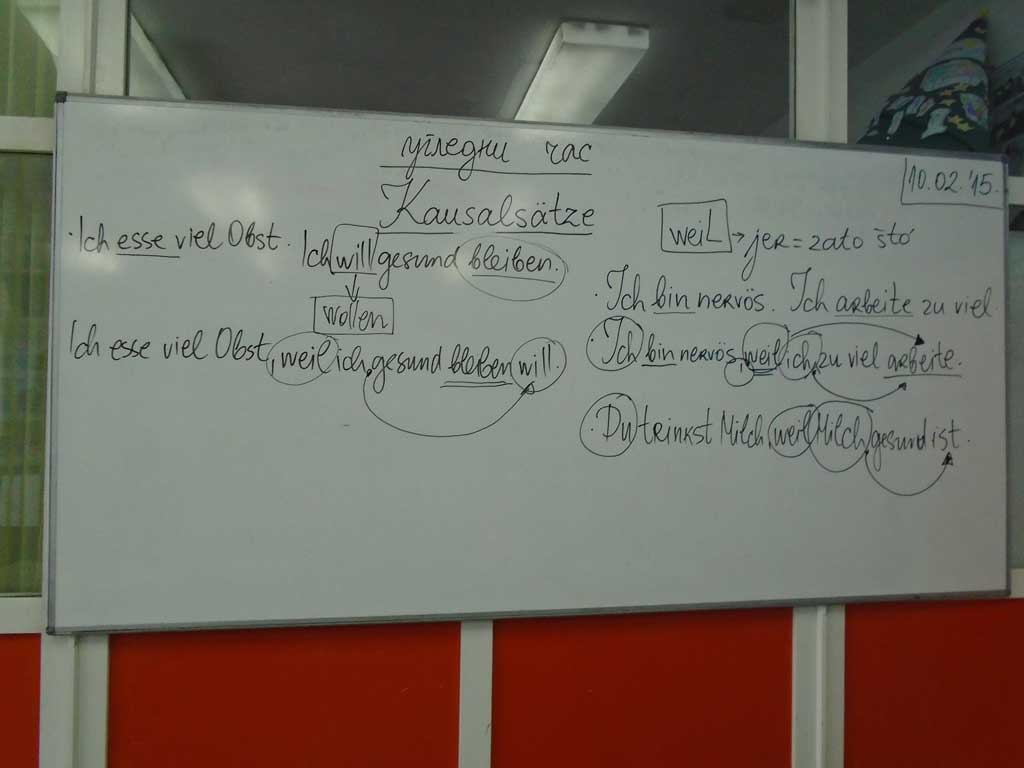 угледни час
10.02.'15.
Kausalsätze
Ich esse viel Obst. Ich will gesund bleiben.
wollen
Ich esse viel Obst, weil ich gesund bleiben will.
weil → jer = zato što
Ich bin nervös. Ich arbeite zu viel.
Ich bin nervös, weil ich zu viel arbeite.
Du trinkst Milch, weil Milch gesund ist.